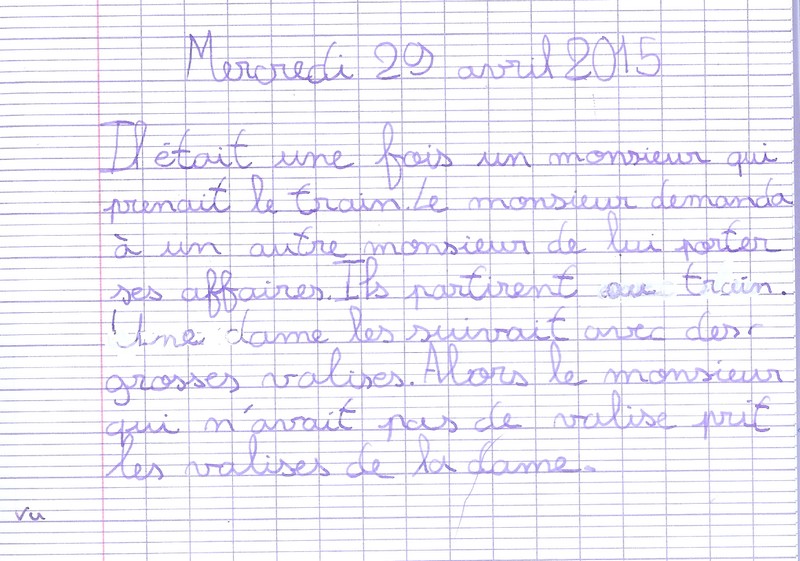 Mercredi 29 avril 2015
Il était une fois un monsieur qui
prenait le train. Le monsieur demanda
à un autre monsieur de lui porter
ses affaires. Ils partirent au train.
Une dame les suivait avec des
grosses valises. Alors le monsieur
qui n'avait pas de valise prit
les valises de la dame.
Vu